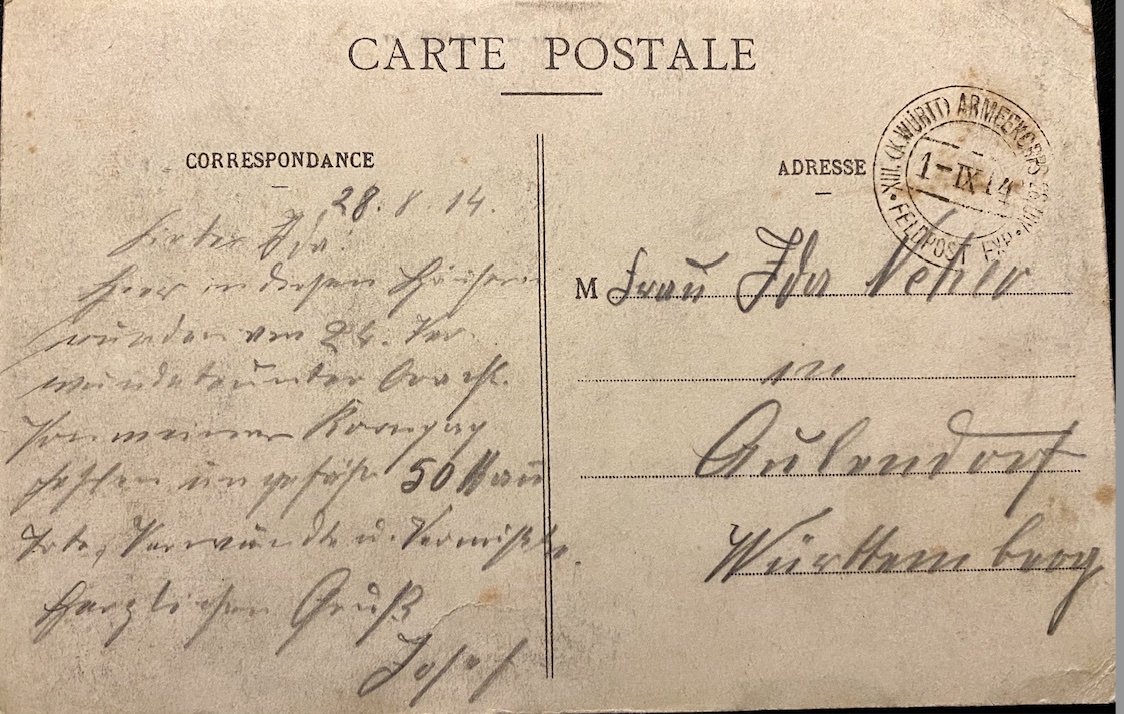 CARTE POSTALE
CORRESPONDANCE
28. 8. 14.
Liebe Ida!
Hier in diesen Häusern
wurden am 24. Ver
wundete unter
Von meiner Kompag
fehlen ungefähr 50 Mann
Tote, Verwundte u. Vermißte.
Herzlichen Gruß
Josef
ADRESSE
XIII. (K. WÜRTT) ARMEEKORPS
1-IX 14
FELDPOST EXP.
M Frau Ida
in
Aulendorf
Württemberg